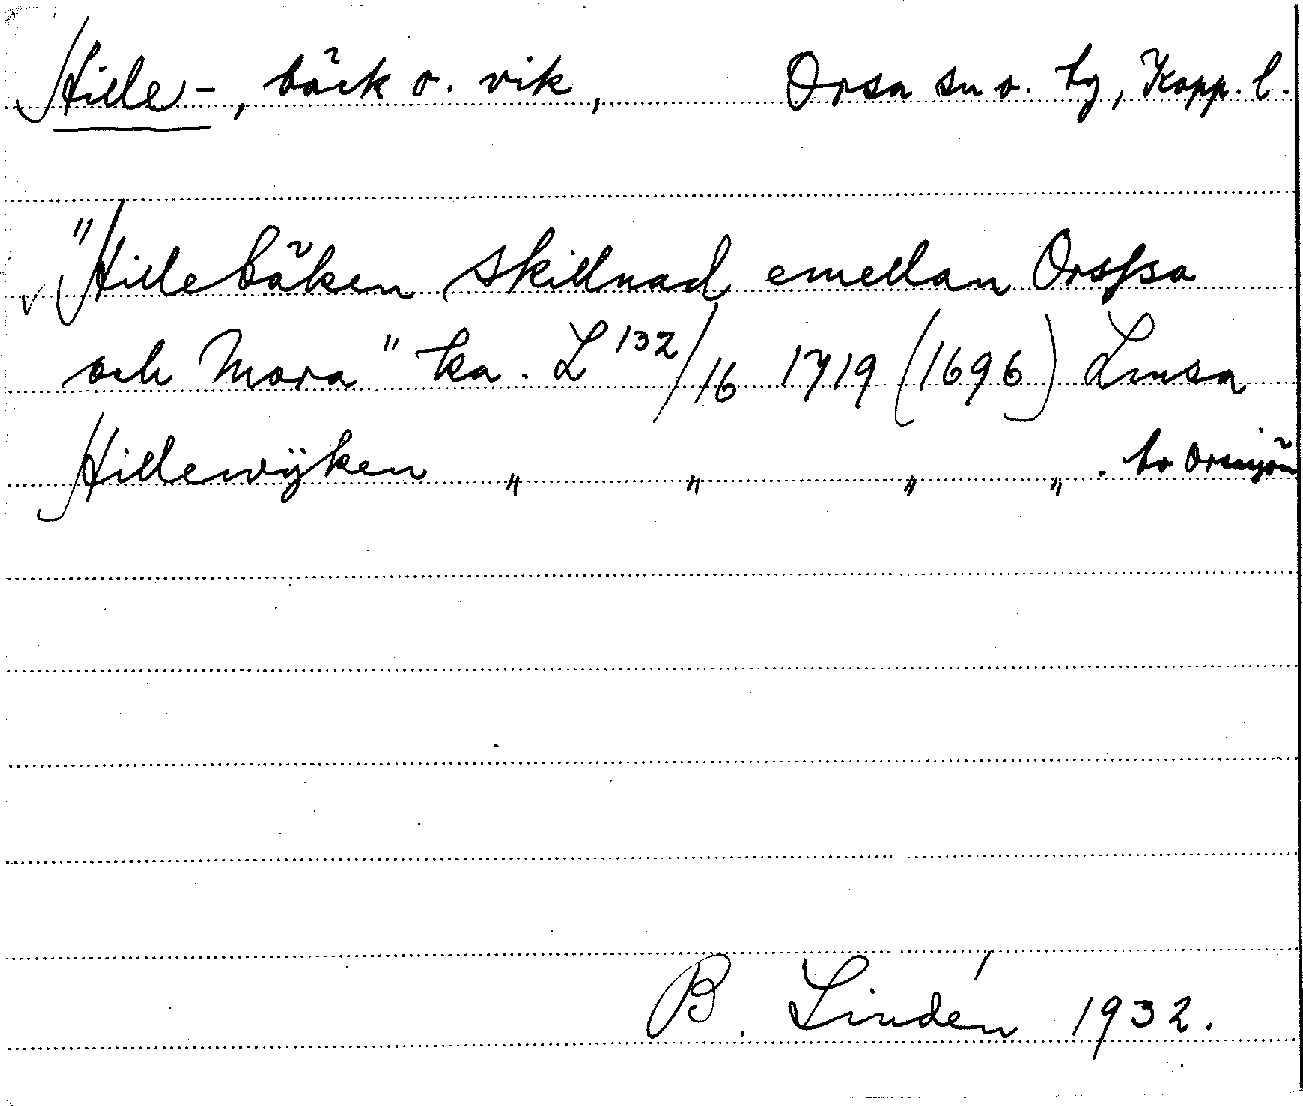 Hille-, bäck o. vik, Orsa sn o. tg, Kopp. l.
"Hillebäken skillnad emellan Orssa
och Mora" ka. L 132/16 1719 (1696) Lmsa
Hillewÿken " " " " . to Orsasjön
B. Lindén 1932.